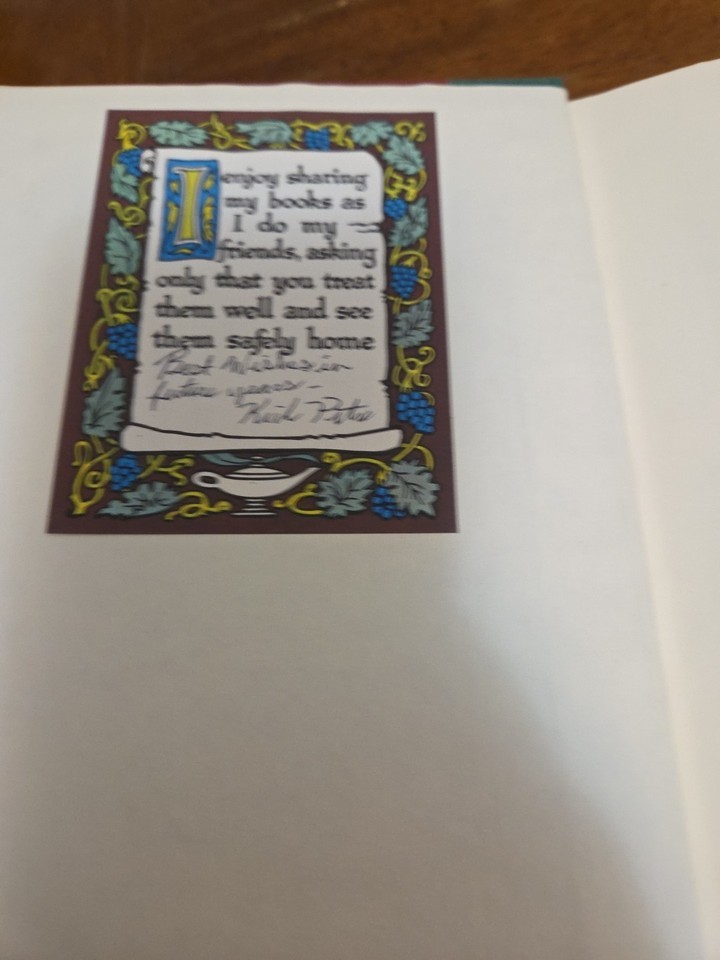 I enjoy sharing
my books as
I do my
friends, asking
only that you treat
them well and see
them safely home
Best Wishes in
future years -